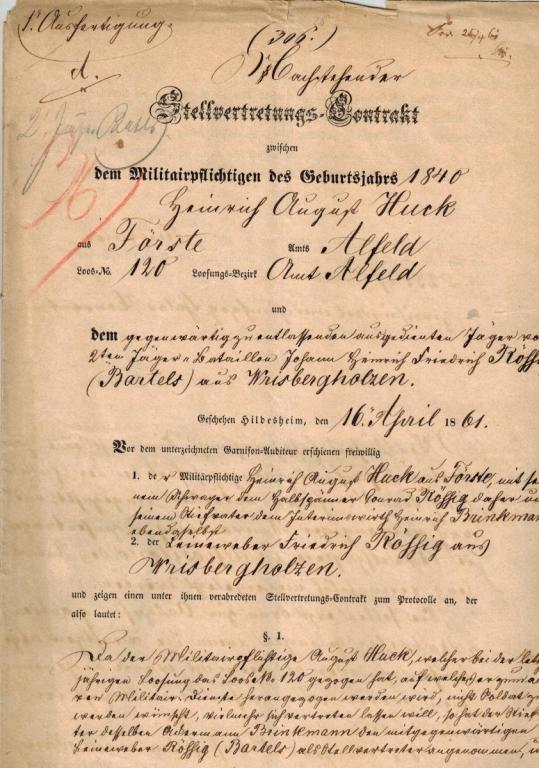 1te Ausfertigung
(306.)
Nachstehender
2. Jäger Batls
Stellvertretungs-Contrakt
zwischen
dem Militairpflichtigen des Geburtsjahrs 1840
Heinrich August Huck
aus Förste Amts Alfeld
Loos-No. 120 Loosungs-Bezirk Amt Alfeld
und
dem gegenwärtig zu entlassenden ausgedienten Jäger vom
2ten Jäger-Bataillon Johann Heinrich Friedrich Rössig
(Bartels) aus Wrisbergholzen.
Geschehen Hildesheim, den 16. April 1861.
Vor dem unterzeichneten Garnison-Auditeur erschienen freiwillig
1. der Militärpflichtige Heinrich August Huck aus Förste, mit sei
nem Schwager dem Halbspänner Conrad Rössig daher und
seinem Stiefvater dem Interimswirth Heinrich Brinkmann
ebendaselbst
2. der Leineweber Friedrich Rössig aus
Wrisbergholzen.
und zeigen einen unter ihnen verabredeten Stellvertretungs-Contrakt zum Protocolle an, der
also lautet:
§. 1.
Da der Militairpflichtige August Huck, welcher bei der
jährigen Loosung das Loos No. 120 gezogen hat, auf welches er zum
ren Militair-Dienste herangezogen werden wird, nicht Soldat zu
werden wünscht, vielmehr sich vertreten lassen will, so hat der Stief
ter desselben Ackermann Brinkmann den mitgegenwärtigen
Leineweber Rössig (Bartels) als Stellvertreter angenommen,